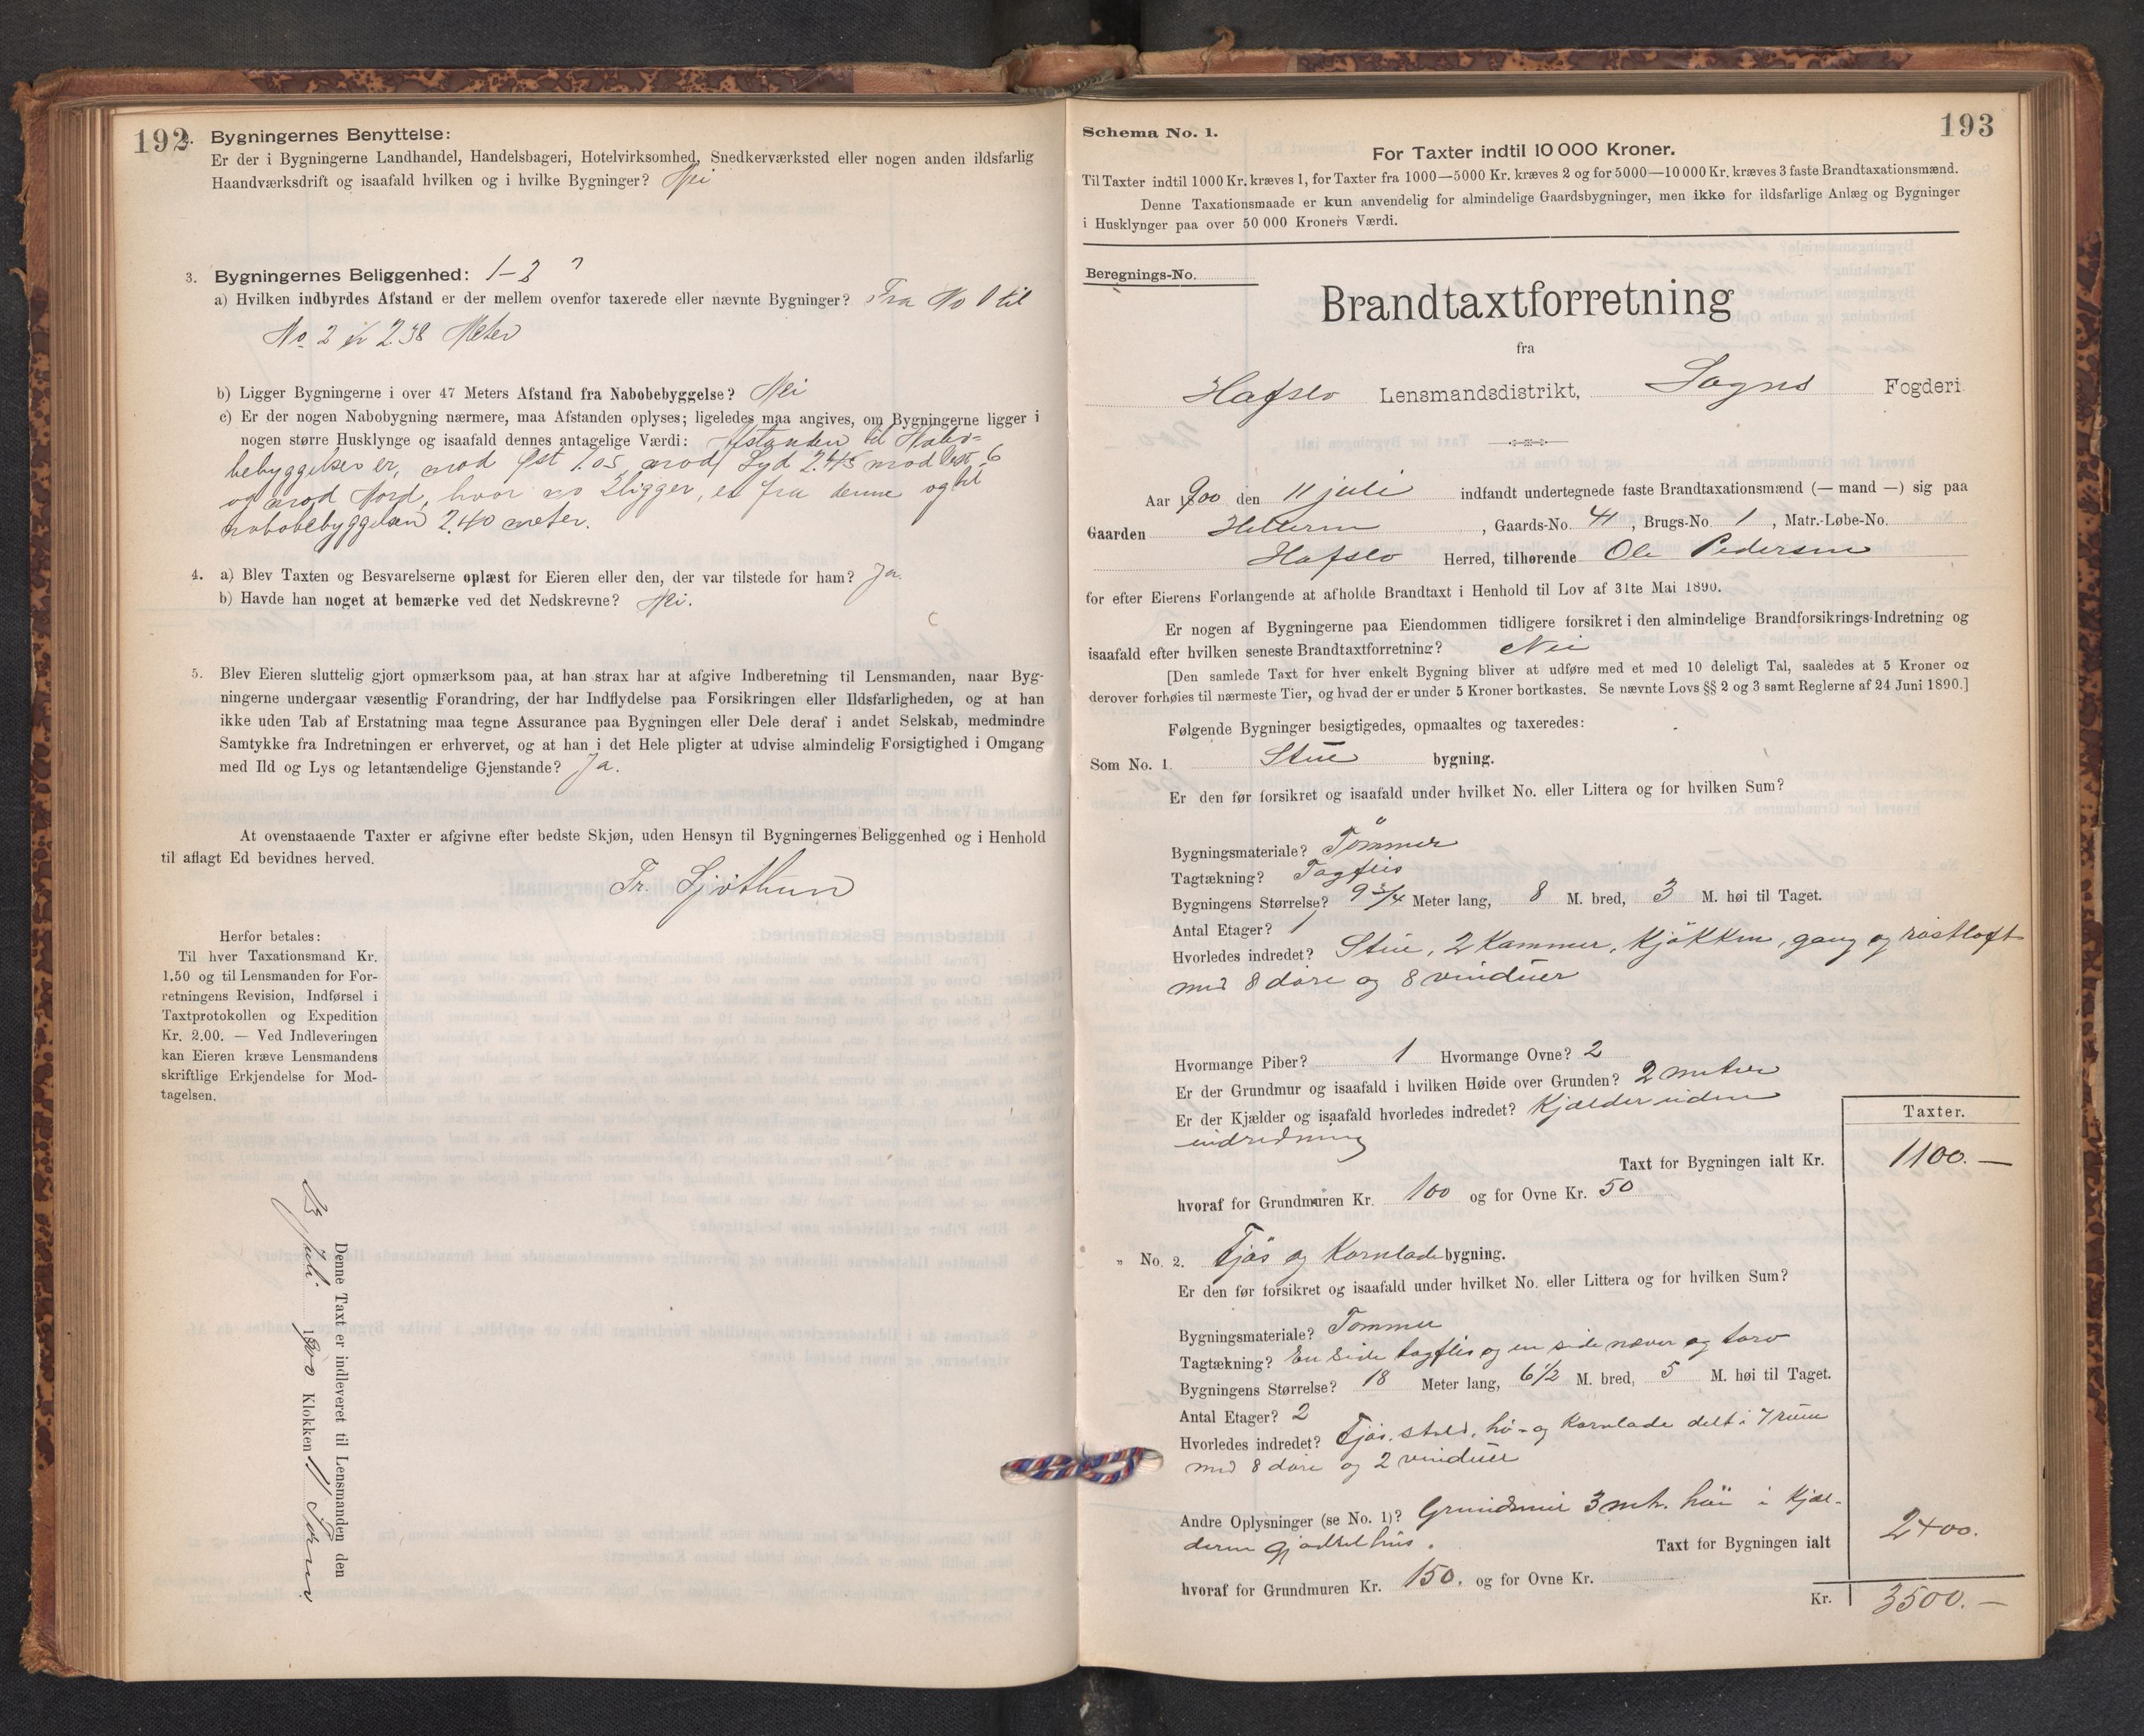 192
2. Bygningernes Benyttelse:
Er der i Bygningerne Landhandel, Handelsbageri, Hotelvirksomhed, Snedkerværksted eller nogen anden ildsfarlig
Haandværksdrift og isaafald hvilken og i hvilke Bygninger? Nei
3. Bygningernes Beliggenhed: 1-2 ?
a) Hvilken indbyrdes Afstand er der mellem ovenfor taxerede eller nævnte Bygninger? Fra No 1 til
No. 2 er 2.38 Meter
b) Ligger Bygningerne i over 47 Meters Afstand fra Nabobebyggelse? Nei
c) Er der nogen Nabobygning nærmere, maa Afstanden oplyses; ligeledes maa angives, om Bygningerne ligger i
nogen større Husklynge og isaafald dennes antagelige Værdi: Afstanden til Nabo-
bebyggelser er, mod Øst 1.05, mod Syd 2.45 mod Vest 6
og mod Nord, hvor no 2 ligger, er fra denne og til
nabobebyggelsen 2.40 meter.
4. a) Blev Taxten og Besvarelserne oplæst for Eieren eller den, der var tilstede for ham? Ja.
b) Havde han noget at bemærke ved det Nedskrevne? Nei.
5. Blev Eieren sluttelig gjort opmærksom paa, at han strax har at afgive Indberetning til Lensmanden, naar Byg-
ningerne undergaar væsentlig Forandring, der har Indflydelse paa Forsikringen eller Ildsfarligheden, og at han
ikke uden Tab af Erstatning maa tegne Assurance paa Bygningen eller Dele deraf i andet Selskab, medmindre
Samtykke fra Indretningen er erhvervet, og at han i det Hele pligter at udvise almindelig Forsigtighed i Omgang
med Ild og Lys og letantændelige Gjenstande? Ja.
At ovenstaaende Taxter er afgivne efter bedste Skjøn, uden Hensyn til Bygningernes Beliggenhed og i Henhold
til aflagt Ed bevidnes herved.
Fr. Sjøthun
Herfor betales:
Til hver Taxationsmand Kr.
1.50 og til Lensmanden for For-
retningens Revision, Indførsel i
Taxtprotokollen og Expedition
Kr. 2.00. — Ved Indleveringen
kan Eieren kræve Lensmandens
skriftlige Erkjendelse for Mod-
tagelsen.
Denne Taxt er indleveret til Lensmanden den
Juli 1900 Klokken 11 Form.
193
Schema No. 1.
For Taxter indtil 10 000 Kroner.
Til Taxter indtil 1000 Kr. kræves 1, for Taxter fra 1000—5000 Kr. kræves 2 og for 5000—10 000 Kr. kræves 3 faste Brandtaxationsmænd.
Denne Taxationsmaade er kun anvendelig for almindelige Gaardsbygninger, men ikke for ildsfarlige Anlæg og Bygninger
i Husklynger paa over 50 000 Kroners Værdi.
Beregnings-No.
Brandtaxtforretning
fra
Hafslo Lensmandsdistrikt, Sogns Fogderi
Aar 1900 den 11 juli indfandt undertegnede faste Brandtaxationsmænd (— mand —) sig paa
Gaarden Hillern, Gaards-No. 41, Brugs-No. 1, Matr.-Løbe-No.
Hafslo Herred, tilhørende Ole Pedersen
for efter Eierens Forlangende at afholde Brandtaxt i Henhold til Lov af 31te Mai 1890.
Er nogen af Bygningerne paa Eiendommen tidligere forsikret i den almindelige Brandforsikrings-Indretning og
isaafald efter hvilken seneste Brandtaxtforretning? Nei
[Den samlede Taxt for hver enkelt Bygning bliver at udføre med et med 10 deleligt Tal, saaledes at 5 Kroner og
derover forhøies til nærmeste Tier, og hvad der er under 5 Kroner bortkastes. Se nævnte Lovs §§ 2 og 3 samt Reglerne af 24 Juni 1890.]
Følgende Bygninger besigtigedes, opmaaltes og taxeredes:
Som No. 1. Stue bygning.
Er den før forsikret og isaafald under hvilket No. eller Littera og for hvilken Sum?
Bygningsmateriale? Tömmer
Tagtækning? Tagflis
Bygningens Størrelse? 9 3/4 Meter lang, 8 M. bred, 3 M. høi til Taget.
Antal Etager? 1
Hvorledes indredet? Stue, 2 Kammer, Kjökken, gang og röstloft
med 8 döre og 8 vinduer
Hvormange Piber? 1 Hvormange Ovne? 2
Er der Grundmur og isaafald i hvilken Høide over Grunden? 2 meter
Er der Kjælder og isaafald hvorledes indredet? Kjælder uden
indredning
Taxter.
Taxt for Bygningen ialt Kr. 1100.—
hvoraf for Grundmuren Kr. 100 og for Ovne Kr. 50
" No. 2. Fjös og Kornlade bygning.
Er den før forsikret og isaafald under hvilket No. eller Littera og for hvilken Sum?
Bygningsmateriale? Tömmer
Tagtækning? En side tagflis og en side næver og torv
Bygningens Størrelse? 18 Meter lang, 6 1/2 M. bred, 5 M. høi til Taget.
Antal Etager? 2
Hvorledes indredet? Fjös, stald, hö- og Kornlade delt i 7 rum
med 8 döre og 2 vinduer
Andre Oplysninger (se No. 1)? Grundmur 3 mtr. höi i Kjæl-
deren gjödselhus.
Taxt for Bygningen ialt 2400.
hvoraf for Grundmuren Kr. 150. og for Ovne Kr.
Kr. 3500.—